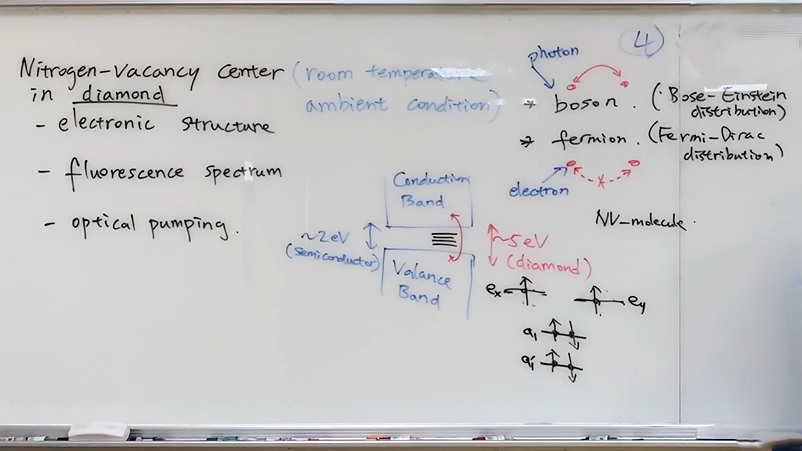 4
Nitrogen-vacancy center (room temperature
in diamond ambient condition)
- electronic structure
- fluorescence spectrum
- optical pumping.
photon
* boson. (Bose-Einstein
distribution)
* fermion. (Fermi-Dirac
distribution)
electron
NV-molecule.
Conduction
Band
~2eV
(semiconductor)
~5eV
(diamond)
Valance
Band
ex
ey
a1
a1'